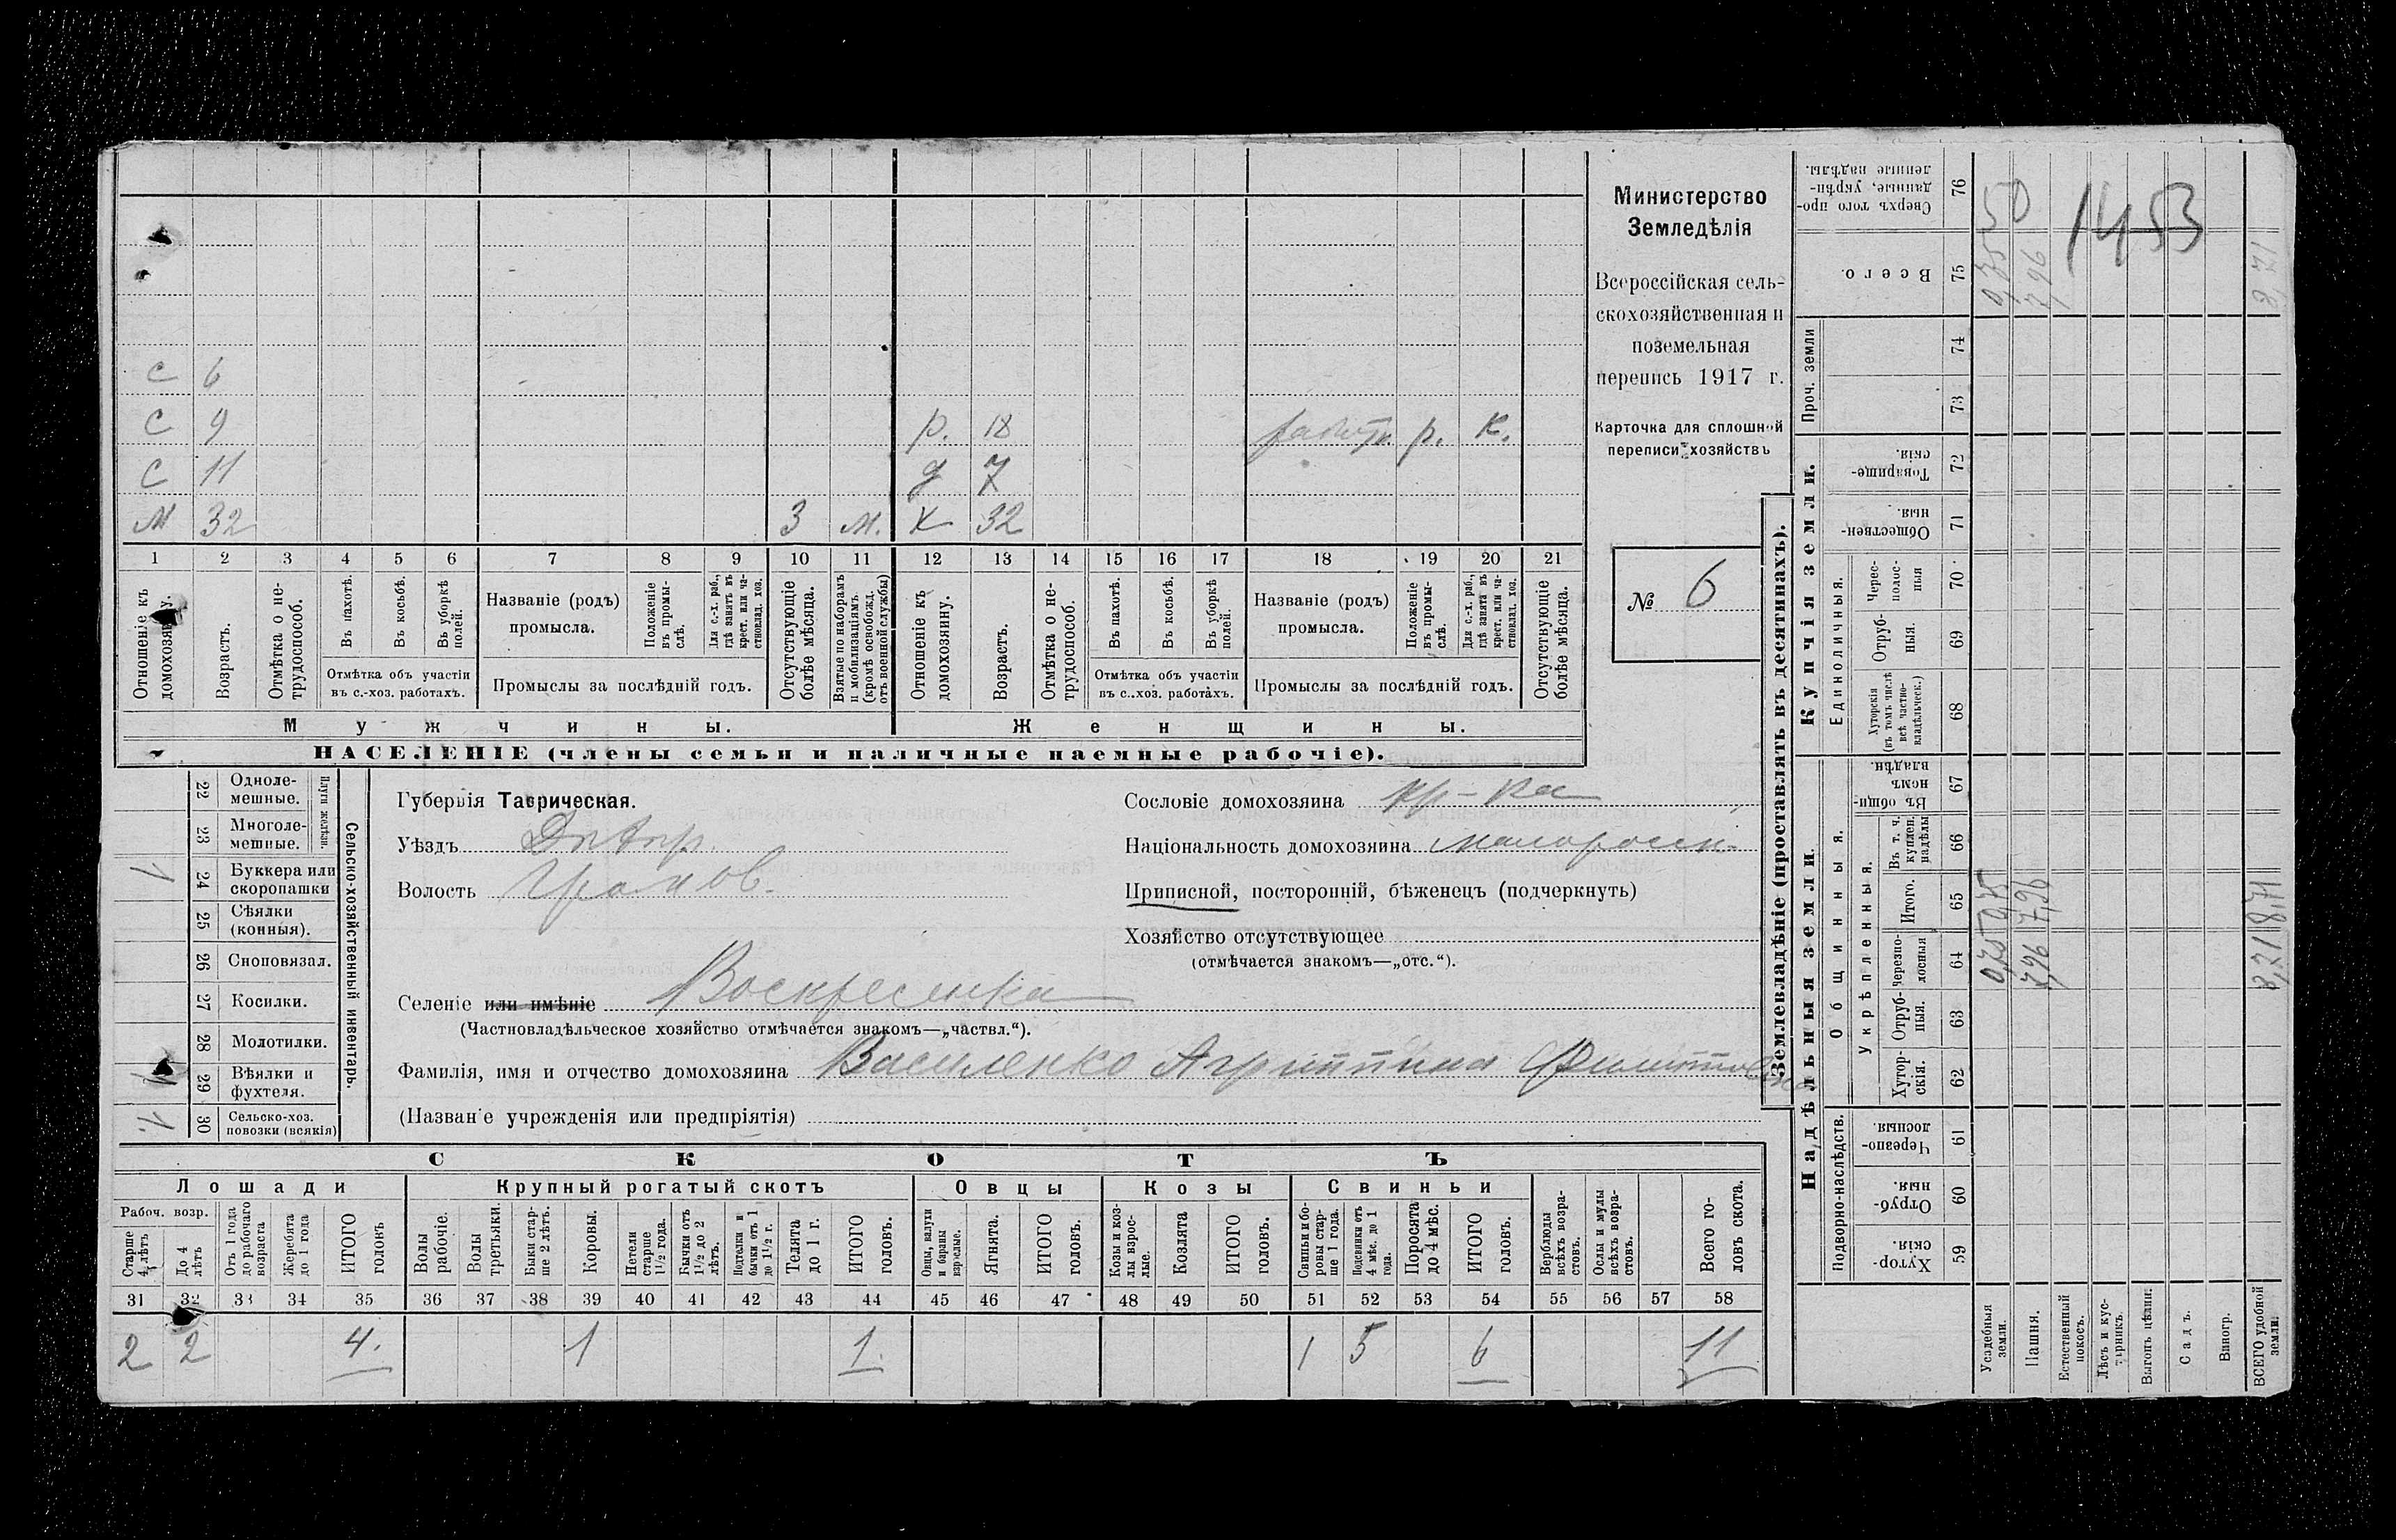 Министерство
Земледѣлія
Всероссійская сель-
скохозяйственная и
поземельная
перепись 1917 г.
Карточка для сплошной
переписи хозяйствъ
№ 6
С 6
С 9 р. 18 р. К.
С 11 д 7
М 32 3 м. Х 32
1 2 3 4 5 6 7 8 9 10 11 12 13 14 15 16 17 18 19 20 21
Отношеніе къ домохозяину.
Возрастъ.
Отмѣтка о не-трудоспособ.
Въ пахотѣ.
Въ косьбѣ.
Въ уборкѣ полей.
Отмѣтка объ участіи
въ с.-хоз. работахъ.
Названіе (родъ)
промысла.
Положеніе въ промы-слѣ.
Для с.-х. раб., гдѣ занятъ въ крест. или ча-стновлад. хоз.
Промыслы за послѣдній годъ.
Отсутствующіе болѣе мѣсяца.
Взятые по наборамъ и мобилизаціямъ. (кромѣ освобожд. отъ военной службы)
Отношеніе къ домохозяину.
Возрастъ.
Отмѣтка о не-трудоспособ.
Въ пахотѣ.
Въ косьбѣ.
Въ уборкѣ полей.
Отмѣтка объ участіи
въ с..хоз. работахъ.
Названіе (родъ)
промысла.
Положеніе въ промы-слѣ.
Для с.-х. раб., гдѣ занята въ крест. или ча-стновлад. хоз.
Промыслы за послѣдній годъ.
Отсутствующіе болѣе мѣсяца.
Мужчины. Женщины.
НАСЕЛЕНІЕ (члены семьи и наличные наемные рабочіе).
Сельско-хозяйственный инвентарь.
Плуги желѣзн.
22 Одноле-мешные.
23 Многоле-мешные.
1 24 Буккера или скоропашки
25 Сѣялки (конныя).
26 Сноповязал.
27 Косилки.
28 Молотилки.
29 Вѣялки и фухтеля.
1. 30 Сельско-хоз. повозки (всякія)
Губернія Таврическая.
Уѣздъ Днѣпр.
Волость
Селеніе или имѣніе Воскресенка
(Частновладѣльческое хозяйство отмѣчается знакомъ—„частвл.“).
Фамилія, имя и отчество домохозяина Василенко Агриппина
(Назван е учрежденія или предпріятія)
Сословіе домохозяина кр-ка
Національность домохозяина малоросси.
Приписной, посторонній, бѣженецъ (подчеркнуть)
Хозяйство отсутствующее
(отмѣчается знакомъ—„отс.“).
СКОТЪ
Лошади Крупный рогатый скотъ Овцы Козы Свиньи
Рабоч. возр.
Старше 4 лѣтъ
До 4 лѣтъ
Отъ 1 года до рабочаго возраста
Жеребята до 1 года
ИТОГО головъ
Волы рабочіе.
Волы третьяки.
Быки стар-ше 2 лѣтъ.
Коровы.
Нетели старше 1½ года.
Бычки отъ 1½ до 2 лѣтъ.
Подтелки и бычки отъ 1 до 1½ г.
Телята до 1 г.
ИТОГО головъ.
Овцы, валухи и бараны взрослые.
Ягнята.
ИТОГО головъ.
Козы и коз-лы взрос-лые.
Козлята
ИТОГО головъ.
Свиньи и бо-ровы стар-ше 1 года.
Подсвинки отъ 4 мѣс. до 1 года.
Поросята до 4 мѣс.
ИТОГО головъ.
Верблюды всѣхъ возра-стовъ.
Ослы и мулы всѣхъ возра-стовъ.
Всего го-ловъ скота.
31 32 33 34 35 36 37 38 39 40 41 42 43 44 45 46 47 48 49 50 51 52 53 54 55 56 57 58
2 2 4. 1 1. 1 5 6 11
Землевладѣніе (проставлять въ десятинахъ).
Надѣльныя земли. Купчія земли.
Подворно-наслѣдств.
Общинныя.
Укрѣпленныя.
Единоличныя.
Проч. земли
59 Хутор-скія.
60 Отруб-ныя.
61 Черезпо-лосныя.
62 Хутор-скія.
63 Отруб-ныя.
64 Черезпо-лосныя
65 Итого.
66 Въ т. ч. куплен. надѣлы
67 Въ общи-номъ владѣн.
68 Хуторскія (въ томъ числѣ всѣ частно-владѣльческ.)
69 Отруб-ныя.
70 Черес-полос-ныя
71 Обществен-ныя.
72 Товарище-скія.
73
74
75 Всего.
76 Сверхъ того про-данные, укрѣп-ленные надѣлы.
Усадебныя земли. 0,75 0,75 50
Пашня. 7,96 7,96 7,96
Естественный покосъ.
Лѣсъ и кус-тарникъ.
Выгонъ цѣлин.
Садъ.
Виногр.
ВСЕГО удобной земли. 8,71 8,71 8,71
1453